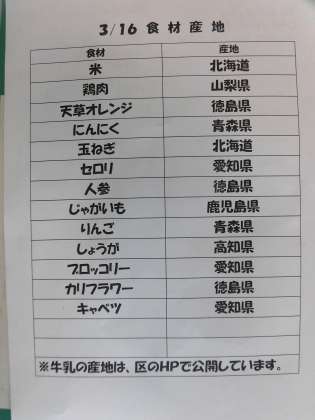 3/16 食材産地
食材 産地
米 北海道
鶏肉 山梨県
天草オレンジ 徳島県
にんにく 青森県
玉ねぎ 北海道
セロリ 愛知県
人参 徳島県
じゃがいも 鹿児島県
りんご 青森県
しょうが 高知県
ブロッコリー 愛知県
カリフラワー 徳島県
キャベツ 愛知県
※牛乳の産地は、区のHPで公開しています。